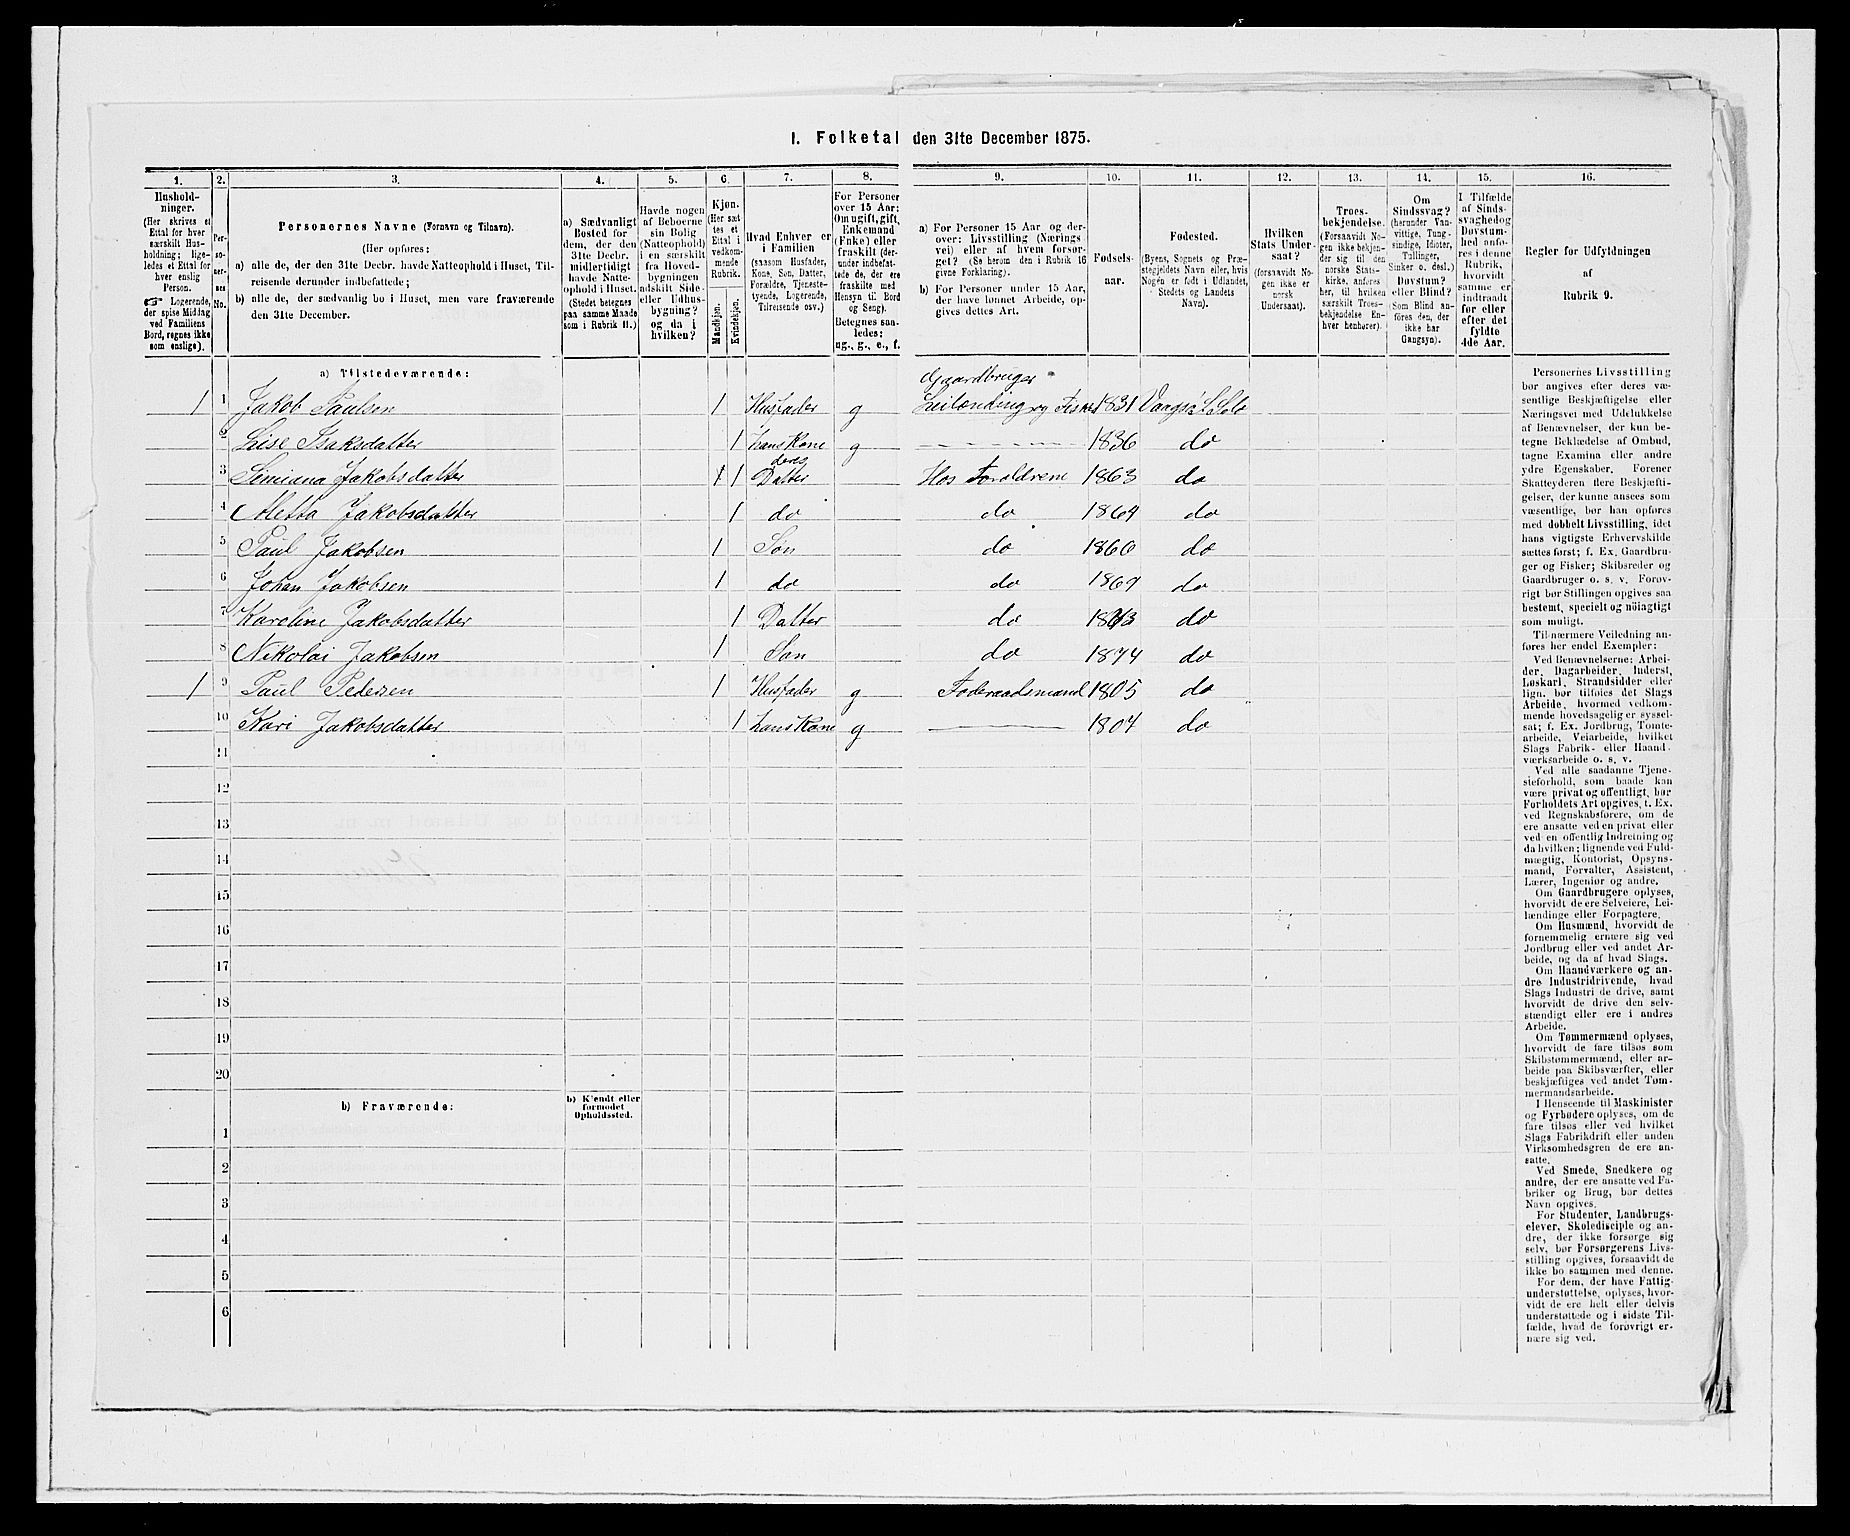 I. Folketal den 31te December 1875.
1. 2. 3. 4. 5. 6. 7. 8. 9. 10. 11. 12. 13. 14. 15. 16.
Hushold-
ninger.
(Her skrives et
Ettal for hver
særskilt Hus-
holdning; lige-
ledes et Ettal for
hver enslig
Person.
☞ Logerende,
der spise Middag
ved Familiens
Bord, regnes ikke
som enslige).
Per-
so-
ner-
nes
No.
Personernes Navne (Fornavn og Tilnavn).
(Her opføres:
a) alle de, der den 31te Decbr. havde Natteophold i Huset, Til-
reisende derunder indbefattede;
b) alle de, der sædvanlig bo i Huset, men vare fraværende
den 31te December.
a) Sædvanligt
Bosted for
dem, der den
31te Decbr.
midlertidigt
havde Natte-
ophold i Huset.
(Stedet betegnes
paa samme Maade
som i Rubrik 11.)
Havde nogen
af Beboerne
sin Bolig
(Natteophold)
i en særskilt
fra Hoved-
bygningen
adskilt Side-
eller Udhus-
bygning?
og da i
hvilken?
Kjøn.
(Her sæt
tes et
Ettal i
vedkom-
mende
Rubrik.
Mandkjøn.
Kvindekjøn.
Hvad Enhver er
i Familien
(saasom Husfader,
Kone, Søn, Datter,
Forældre, Tjeneste-
tyende, Logerende,
Tilreisende osv.)
For Personer
over 15 Aar:
Om ugift, gift,
Enkemand
(Enke) eller
fraskilt (der-
under indbefat-
tede de, der ere
fraskilte med
Hensyn til Bord
og Seng).
Betegnes saa-
ledes:
ug., g., e., f.
a) For Personer 15 Aar og der-
over: Livsstilling (Nærings
vei) eller af hvem forsør-
get? (Se herom den i Rubrik 16
givne Forklaring).
b) For Personer under 15 Aar,
der have lønnet Arbeide, op-
gives dettes Art.
Fødsels-
aar.
Fødested.
(Byens, Sognets og Præ-
stegjeldets Navn eller, hvis
Nogen er født i Udlandet,
Stedets og Landets
Navn).
Hvilken
Stats Under-
saat?
(forsaavidt No-
gen ikke er
norsk
Undersaat).
Troes-
bekjendelse.
(Forsaavidt No-
gen ikke bekjen-
der sig til den
norske Stats-
kirke, anføres
her, til hvilken
særskilt Troes-
bekjendelse En-
hver henhører).
Om
Sindssvag?
(herunder Van-
vittige, Tung-
sindige, Idioter,
Tullinger,
Sinker o. desl.)
Døvstum?
eller Blind?
(Som Blind an-
føres den, der
ikke har
Gangsyn).
I Tilfælde
af Sinds-
svaghed og
Døvstum-
hed anfø-
res i denne
Rubrik,
hvorvidt
samme er
indtraadt
før eller
efter det
fyldte
4de Aar.
Regler for Udfyldningen
af
Rubrik 9.
a) Tilstedeværende:
Gaardbruger
1 1 Jakob Paulsen 1 Husfader g Leilænding og Fisker 1831
2 Lise Isaksdatter 1 hans Kone g 1836 do
deres
3 Simiana Jakobsdatter 1 Datter Hos Forældrene 1863 do
4 Metta Jakobsdatter 1 do do 1864 do
5 Paul Jakobsen 1 Søn do 1860 do
6 Johan Jakobsen 1 do do 1869 do
7 Karoline Jakobsdatter 1 Datter do do
8 Nikolai Jakobsen 1 Søn do 1874 do
1 9 Paul Pedersen 1 Husfader g Føderaadsmand 1805 do
10 Kari Jakobsdatter 1 hans Kone g 1804 do
11
12
13
14
15
16
17
18
19
20
b) Fraværende:
b) Kjendt eller
formodet
Opholdssted.
1
2
3
4
5
6
Personernes Livsstilling
bør angives efter deres væ-
sentlige Beskjæftigelse eller
Næringsvei med Udelukkelse
af Benævnelser, der kun be-
tegne Beklædelse af Ombud,
tagne Examina eller andre
ydre Egenskaber. Forener
Skatteyderen flere Beskjæfti-
gelser, der kunne ansees som
væsentlige, bør han opføres
med dobbelt Livsstilling, idet
hans vigtigste Erhvervskilde
sættes først; f. Ex. Gaardbru-
ger og Fisker; Skibsreder og
Gaardbruger o. s. v. Forøv-
rigt bør Stillingen opgives saa
bestemt, specielt og nøiagtigt
som muligt.
Til nærmere Veiledning an-
føres her endel Exempler:
Ved Benævnelserne: Arbei-
der, Dagarbeider, Inderst,
Løskarl, Strandsidder eller
lign. bør tilføies det Slags
Arbeide, hvormed vedkom-
mende hovedsagelig er syssel-
sat; f. Ex. Jordbrug, Tomte-
arbeide, Veiarbeide, hvilket
Slags Fabrik- eller Haand-
værksarbeide o. s. v.
Ved alle saadanne Tjene-
steforhold, som baade kan
være privat og offentligt, bør
Forholdets Art opgives, t. Ex.
ved Regnskabsførere, om de
ere ansatte ved en privat eller
ved en offentlig Indretning og
da hvilken; lignende ved Fuld-
mægtig, Kontorist, Opsyns-
mand, Forvalter, Assistent,
Lærer, Ingeniør og andre.
Om Gaardbrugere oplyses,
hvorvidt de ere Selveiere, Lei-
lændinge eller Forpagtere.
Om Husmænd, hvorvidt de
fornemmelig ernære sig ved
Jordbrug eller ved andet Ar-
beide, og da af hvad Slags.
Om Haandværkere og an-
dre Industridrivende, hvad
Slags Industri de drive, samt
hvorvidt de drive den selv-
stændigt eller ere i andres
Arbeide.
Om Tømmermænd oplyses,
hvorvidt de fare tilsøs som
Skibstømmermænd, eller ar-
beide paa Skibsværfter, eller
beskjæftiges ved andet Tøm-
mermandsarbeide.
I Henseende til Maskinister
og Fyrbødere oplyses, om de
fare tilsøs eller ved hvilket
Slags Fabrikdrift eller anden
Virksomhedsgren de ere an-
satte.
Ved Smede, Snedkere og
andre, der ere ansatte ved Fa-
briker og Brug, bør dettes
Navn opgives.
For Studenter, Landbrugs-
elever, Skoledisciple og an-
dre, der ikke forsørge sig
selv, bør Forsørgerens Livs-
stilling opgives, forsaavidt de
ikke bo sammen med denne.
For dem, der have Fattig-
understøttelse, oplyses, hvor-
vidt de ere helt eller delvis
understøttede og i sidste Til-
fælde, hvad de forøvrigt er-
nære sig ved.